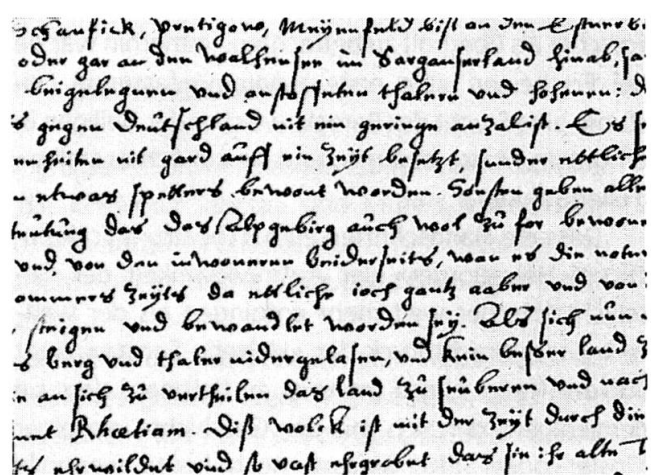 Schanfick, Pretigow, Meyenfeld biß an den Estner
oder gar an den Walhensee im Sarganserland hinab,
beigelegnen vnd anstossenten thalern vnd hohenen:
gegen Deütschland nit ein geringe anzal ist. Es
nit gard auff ein Zeyt besetzt, sunder ettlich
etwas spetters bewont worden. Sonsten geben alle
das das Alpgebirg auch wol zů for
vnd von den inwoneren beiderseits, wan es die
Zeyts da ettliche ioch gantz aaber vnd von
stiegen vnd bewandlet worden sey. Als sich nůn
berg vnd thaler nidergelasen, vnd kein besser land
an sich zů vertheilen das land zů seüberen vnd nach
Rhætiam. Diß volck ist mit der Zeyt durch die
ehrwildet vnd so vast ehrgrobet das sie ihr alte